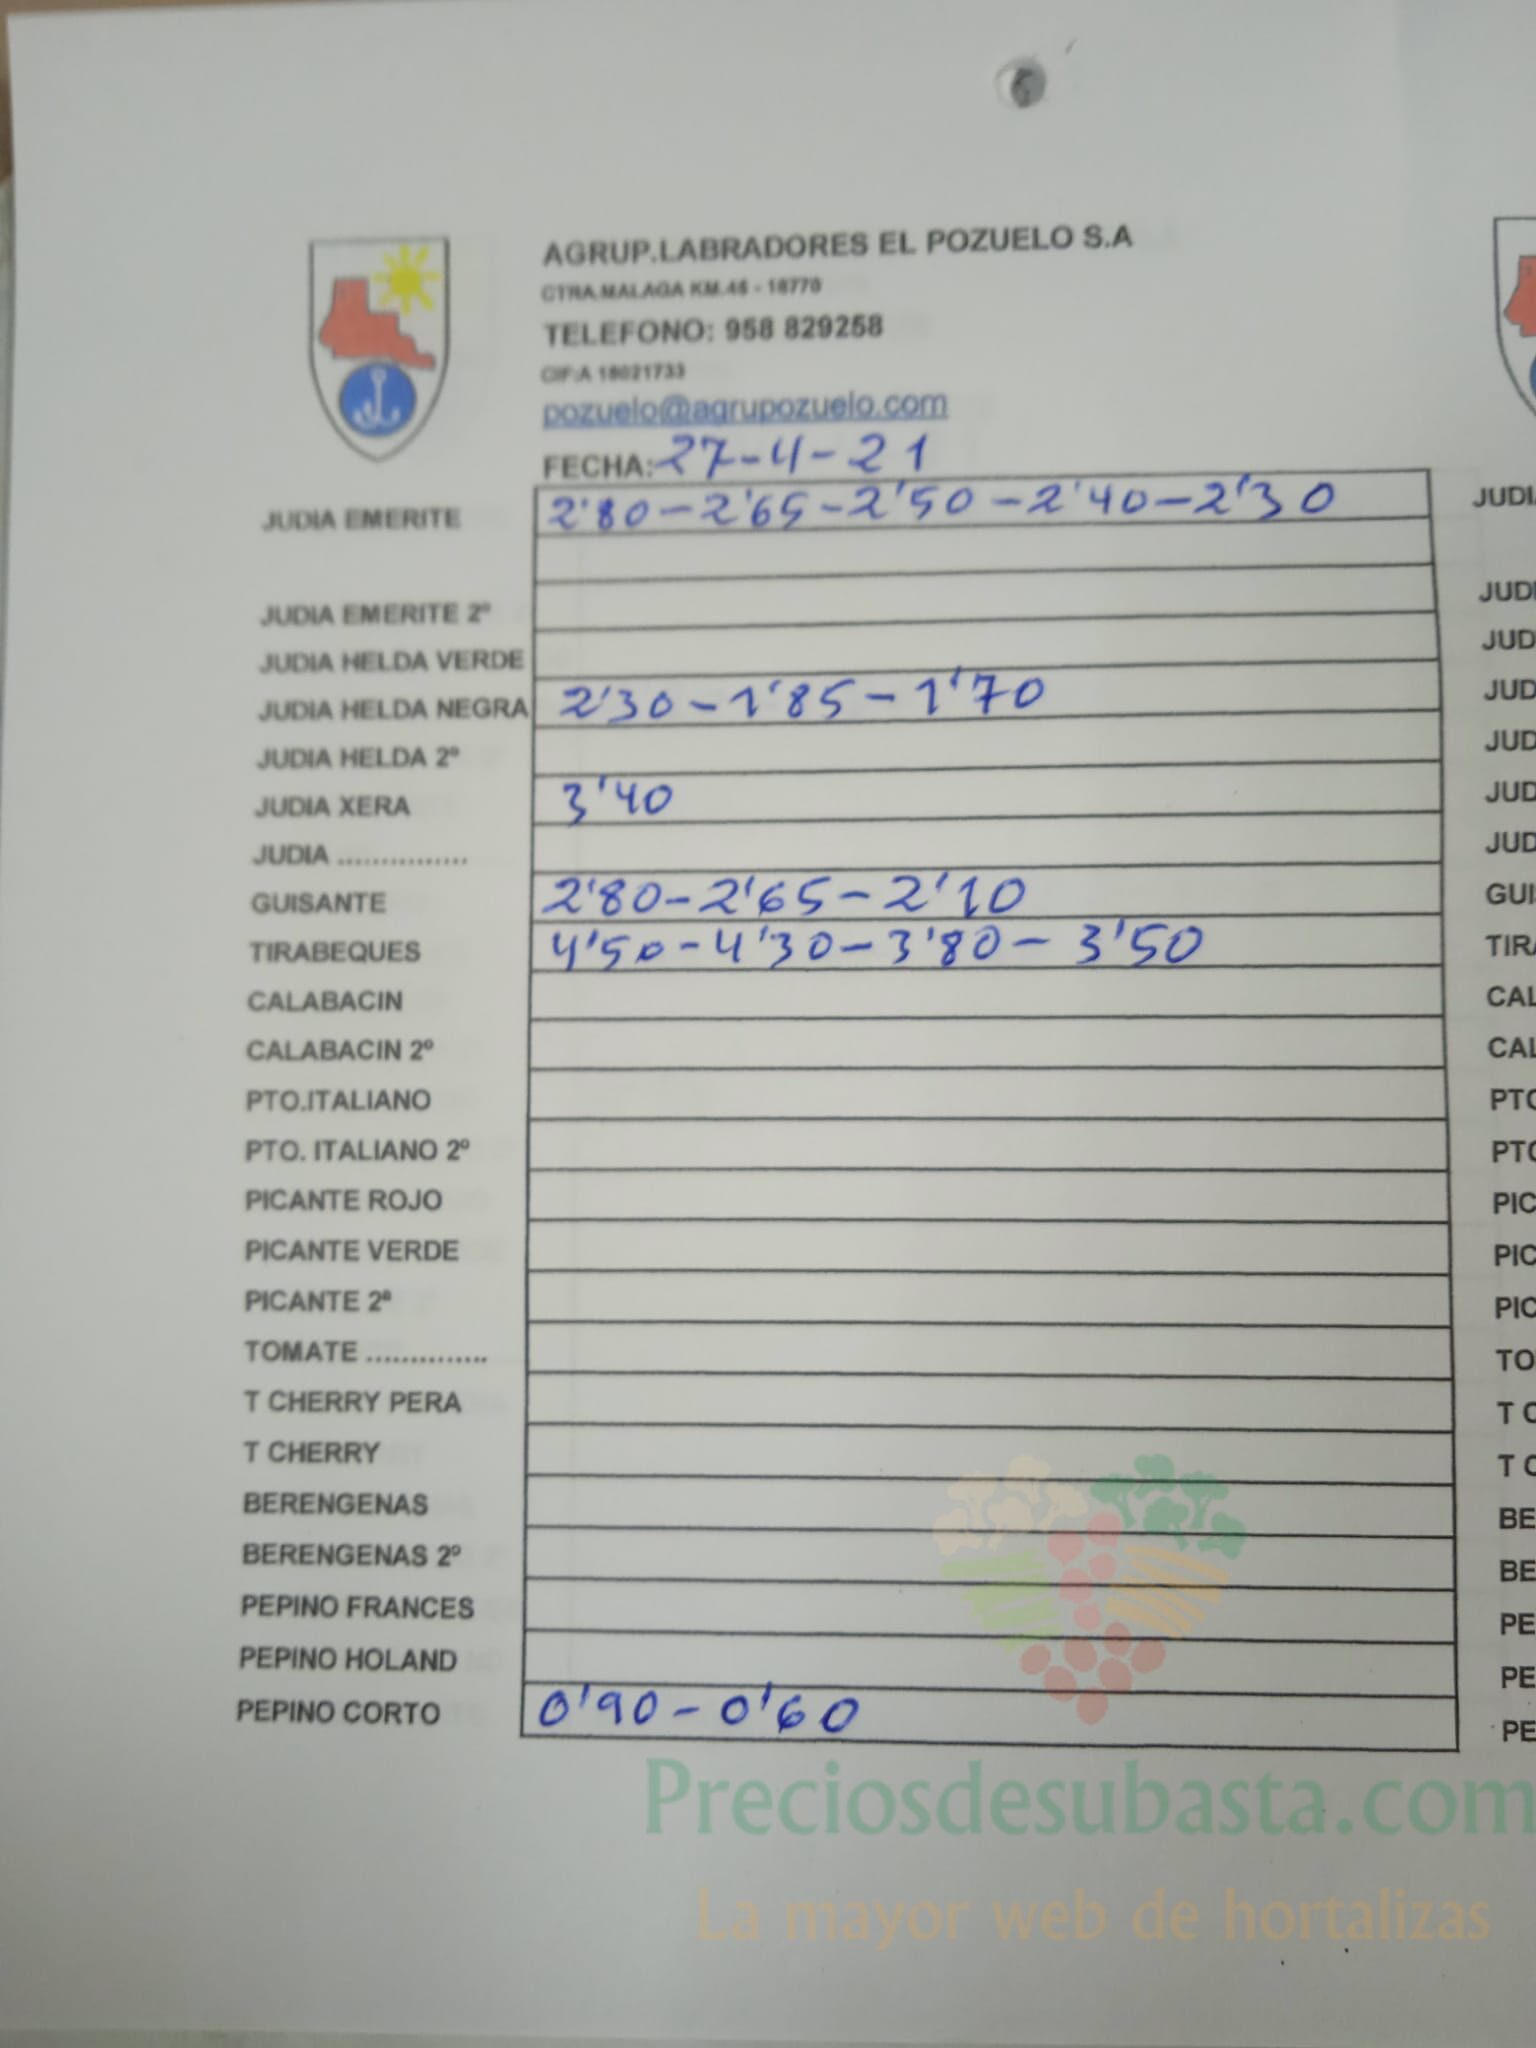 AGRUP.LABRADORES EL POZUELO S.A
CTRA.MALAGA KM.46 - 18770
TELEFONO: 958 829258
CIF:A 18021733
pozuelo@agrupozuelo.com
FECHA: 27-4-21
JUDIA EMERITE 2'80-2'65-2'50-2'40-2'30
JUDIA EMERITE 2º
JUDIA HELDA VERDE
JUDIA HELDA NEGRA 2'30-1'85-1'70
JUDIA HELDA 2º
JUDIA XERA 3'40
JUDIA ...............
GUISANTE 2'80-2'65-2'10
TIRABEQUES 4'50-4'30-3'80-3'50
CALABACIN
CALABACIN 2º
PTO.ITALIANO
PTO. ITALIANO 2º
PICANTE ROJO
PICANTE VERDE
PICANTE 2ª
TOMATE ..............
T CHERRY PERA
T CHERRY
BERENGENAS
BERENGENAS 2º
PEPINO FRANCES
PEPINO HOLAND
PEPINO CORTO 0'90-0'60
Preciosdesubasta.com
La mayor web de hortalizas
JUDIA
JUDI
JUD
JUD
JUD
JUD
JUD
GUIS
TIRA
CAL
CAL
PTO
PTO
PIC
PIC
PIC
TO
T C
T C
BE
BE
PE
PE
PE